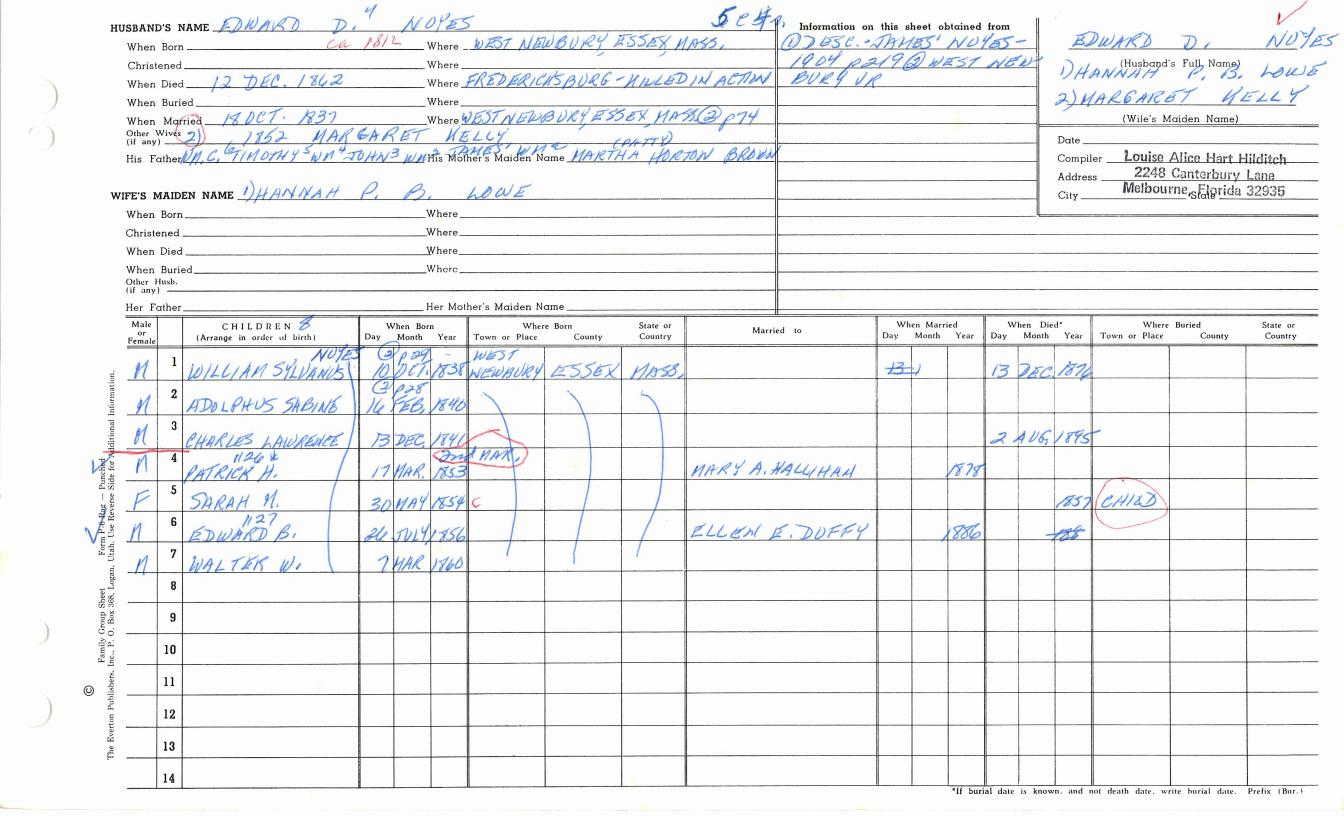 HUSBAND'S NAME EDWARD D. NOYES
When Born ca 1812 Where WEST NEWBURY, ESSEX, MASS.
Christened Where
When Died 12 DEC. 1862 Where FREDERICKSBURG - KILLED IN ACTION
When Buried Where
When Married 18 OCT. 1837 Where WEST NEWBURY, ESSEX, MASS. ② p74
Other Wives (if any) 2) 1852 MARGARET KELLY
(PATTY)
His Father WM. C. TIMOTHY WM JOHN WM JAMES, WM His Mother's Maiden Name MARTHA HORTON BROWN
WIFE'S MAIDEN NAME 1) HANNAH P. B. LOWE
When Born Where
Christened Where
When Died Where
When Buried Where
Other Husb. (if any)
Her Father Her Mother's Maiden Name
Information on this sheet obtained from
① DESC. - JAMES' NOYES -
1904 p219 ② WEST NEW
BURY VR
EDWARD D. NOYES
(Husband's Full Name)
1) HANNAH P. B. LOWE
2) MARGARET KELLY
(Wife's Maiden Name)
Date
Compiler Louise Alice Hart Hilditch
Address 2248 Canterbury Lane
City Melbourne, Florida 32935 State
Male or Female CHILDREN 8 (Arrange in order of birth) When Born Day Month Year Where Born Town or Place County State or Country Married to When Married Day Month Year When Died* Day Month Year Where Buried Town or Place County State or Country
NOYES ② p24 - WEST
M 1 WILLIAM SYLVANUS 10 OCT. 1838 NEWBURY ESSEX MASS. 13 13 DEC. 1876
② p28
M 2 ADOLPHUS SABINE 16 FEB. 1840
M 3 CHARLES LAWRENCE 13 DEC. 1841 2 AUG. 1895
1126 * 2nd MAR.
M 4 PATRICK H. 17 MAR. 1853 MARY A. HALLIHAN 1878
F 5 SARAH M. 30 MAY 1854 C 1857 CHILD
1127
M 6 EDWARD B. 26 JULY 1856 ELLEN E. DUFFY 1886 188
M 7 WALTER W. 7 MAR 1860
8
9
10
11
12
13
14
*If burial date is known, and not death date, write burial date. Prefix (Bur.)
Family Group Sheet
The Everton Publishers, Inc., P. O. Box 368, Logan, Utah. Use Reverse Side for Additional Information.
©